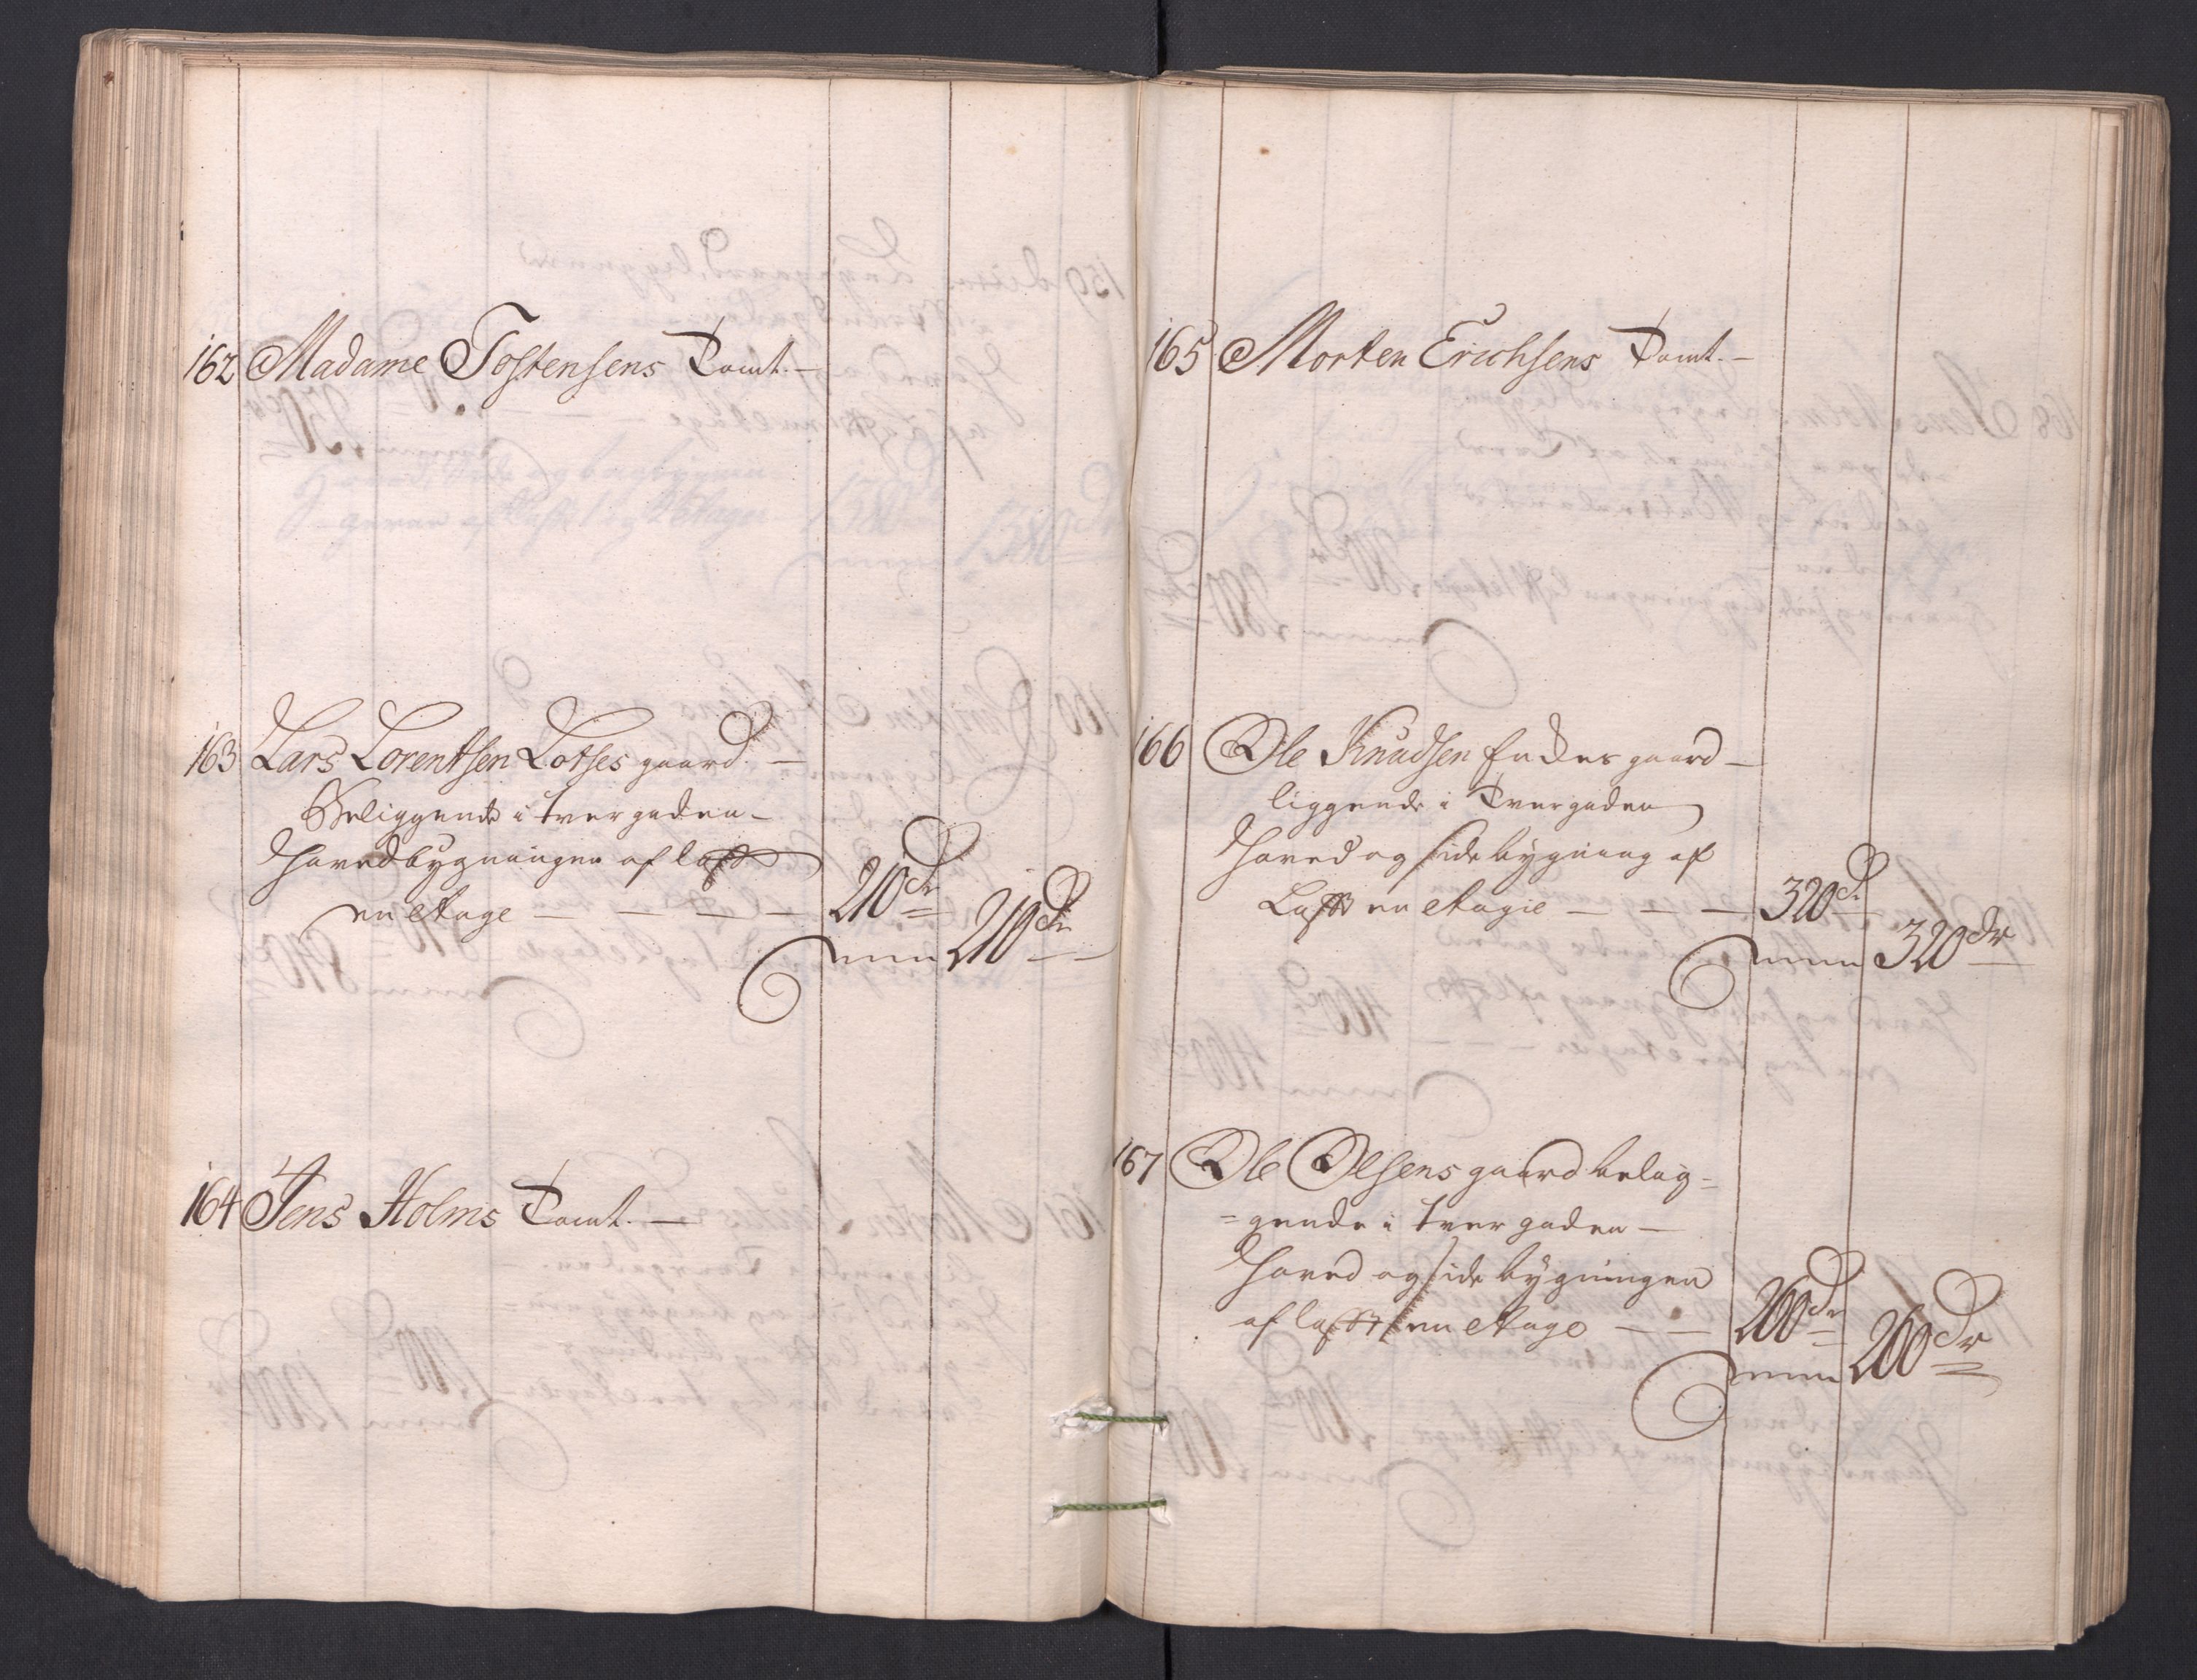 162 Madame Tostensens Tomt. —
163 Lars Lorentsen Lotses gaard. —
Beliggende i tvergaden —
Hovedbygningen af laft
en Etage — — — — 210 dr
Summa 210 dr
164 Jens Holms Tomt. —
165 Morten Erichsens Tomt. —
166 Ole Knudsen gaard —
liggende i Tvergaden
Hoved og side bygning af
Laft en Etagie — — — 320 d
Summa 320 dr
167 Ole Olsens gaard belig=
=gende i tvergaden —
Hoved og side bygningen
af laft en Etage — — 260 dr
Summa 260 dr